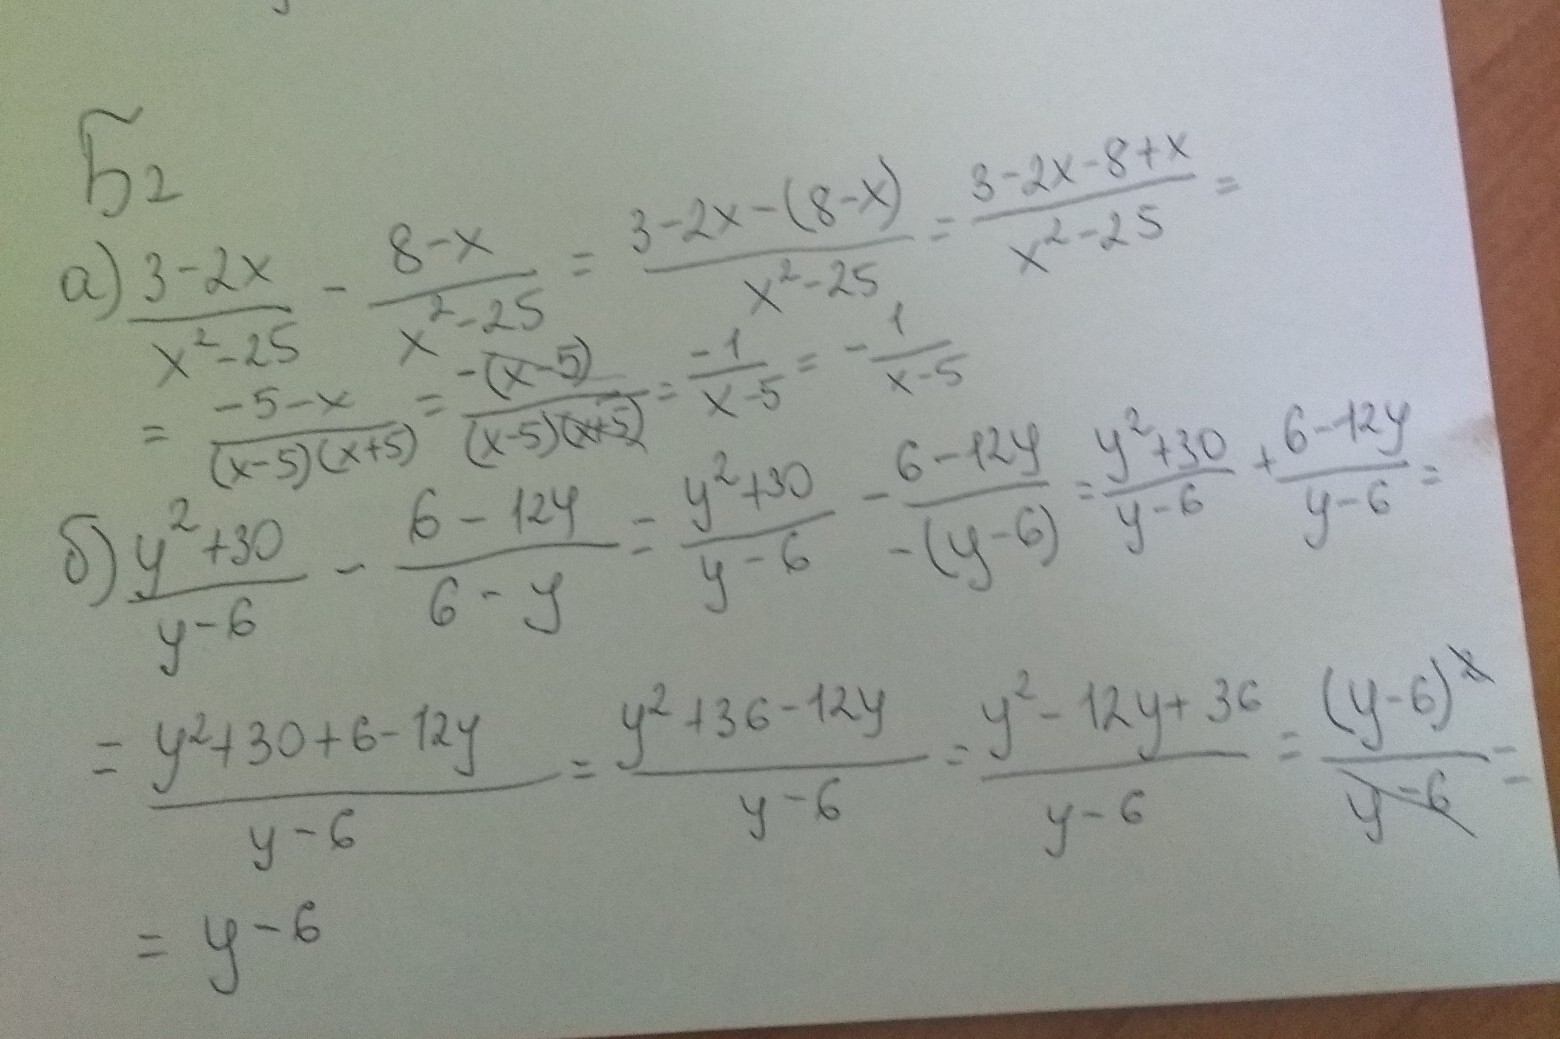 Б2
а) (3-2x)/(x²-25) - (8-x)/(x²-25) = (3-2x-(8-x))/(x²-25) = (3-2x-8+x)/(x²-25) =
= (-5-x)/((x-5)(x+5)) = (-(x-5))/((x-5)(x+5)) = (-1)/(x-5) = - 1/(x-5)
б) (y²+30)/(y-6) - (6-12y)/(6-y) = (y²+30)/(y-6) - (6-12y)/(-(y-6)) = (y²+30)/(y-6) + (6-12y)/(y-6) =
= (y²+30+6-12y)/(y-6) = (y²+36-12y)/(y-6) = (y²-12y+36)/(y-6) = (y-6)²/(y-6) =
= y-6